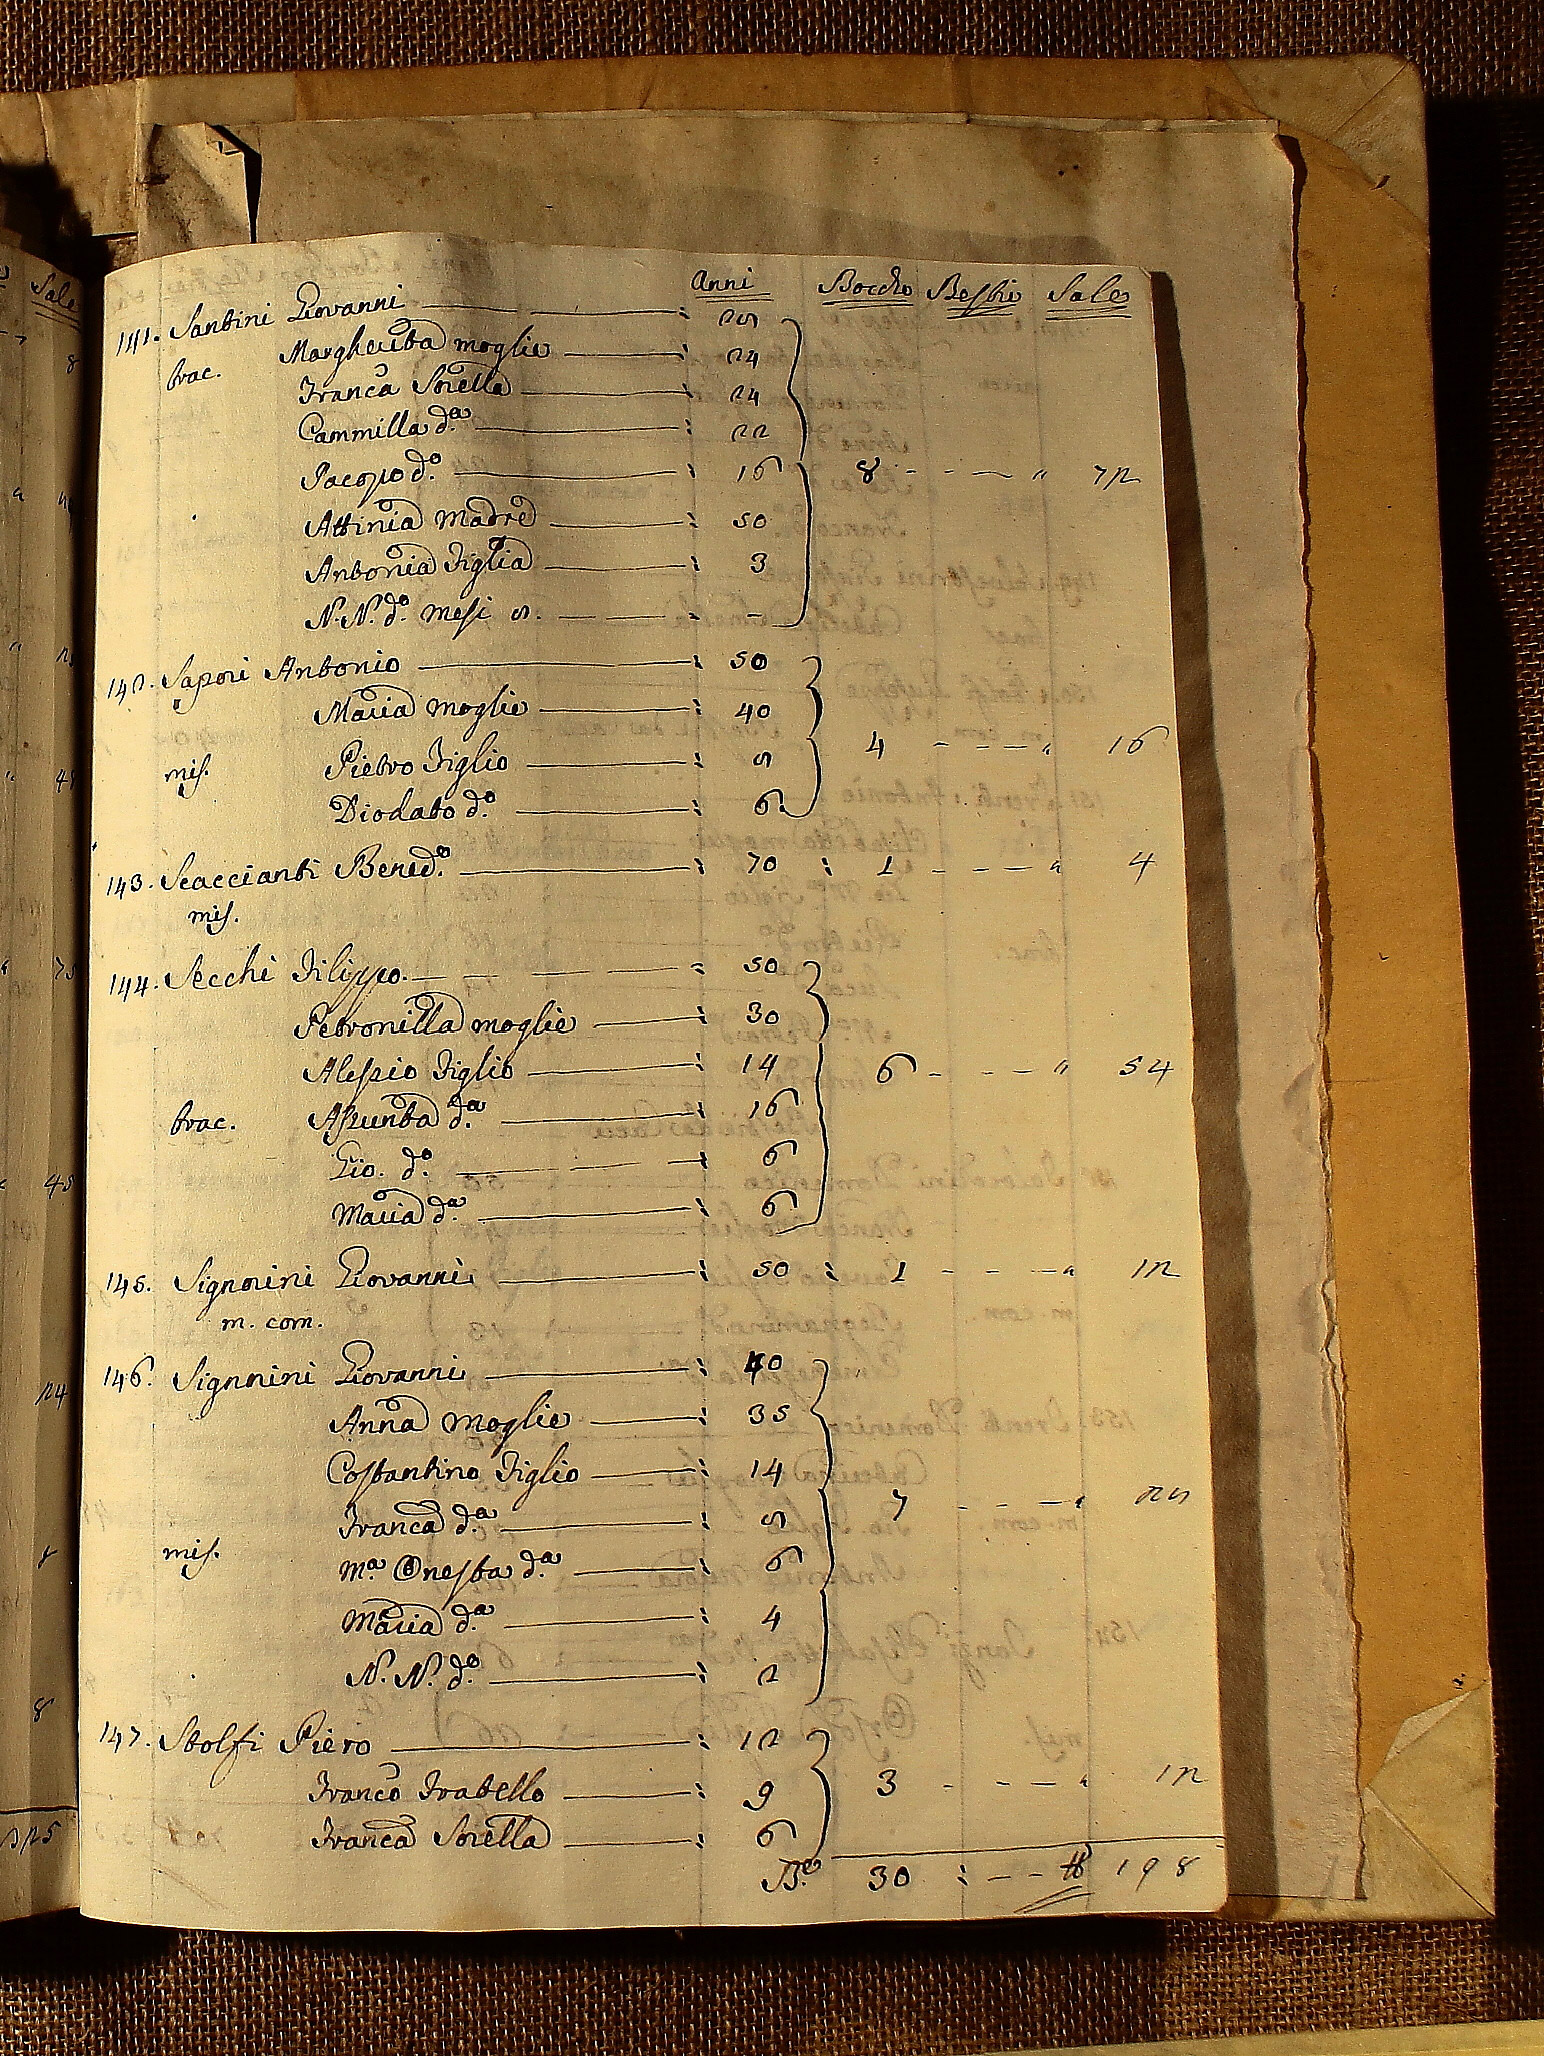 Anni Bocche Bestie Sale
141. Santini Giovanni 28
brac. Margherita moglie 24
Franca Sorella 24
Cammilla d.a 22
Jacopo d.o 16 8 - - - " 72
Attinia Madre 50
Antonia Figlia 3
N. N. d.o mesi 8. -
142. Sapori Antonio 50
Maria moglie 40
4 - - - " 16
mis. Pietro Figlio 8
Diodato d.o 6
143. Scaccianti Bened.o 70 : 1 - - - " 4
mis.
144. Secchi Filippo. 50
Petronilla moglie 30
Alessio Figlio 14 6 - - - " 54
brac. Assunta d.a 16
Gio. d.o 6
Maria d.a 6
145. Signorini Giovanni 50 : 1 - - - " 12
m. com.
146. Signorini Giovanni 40
Anna Moglie 35
Costantino Figlio 14
7 - - - " 28
Franca d.a 8
mis. M.a Onesta d.a 6
Maria d.a 4
N. N. d.o 2
147. Stolfi Piero 12
Franco Fratello 9 3 - - - " 12
Franca Sorella 6
30 : - - # 198